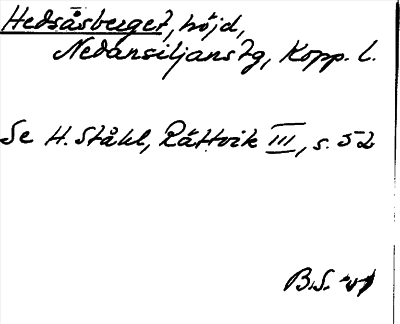 Hedsåsberget, höjd,
Nedansiljans tg, Kopp. l.
Se H. Ståhl, Rättvik III, s. 52
B.S.